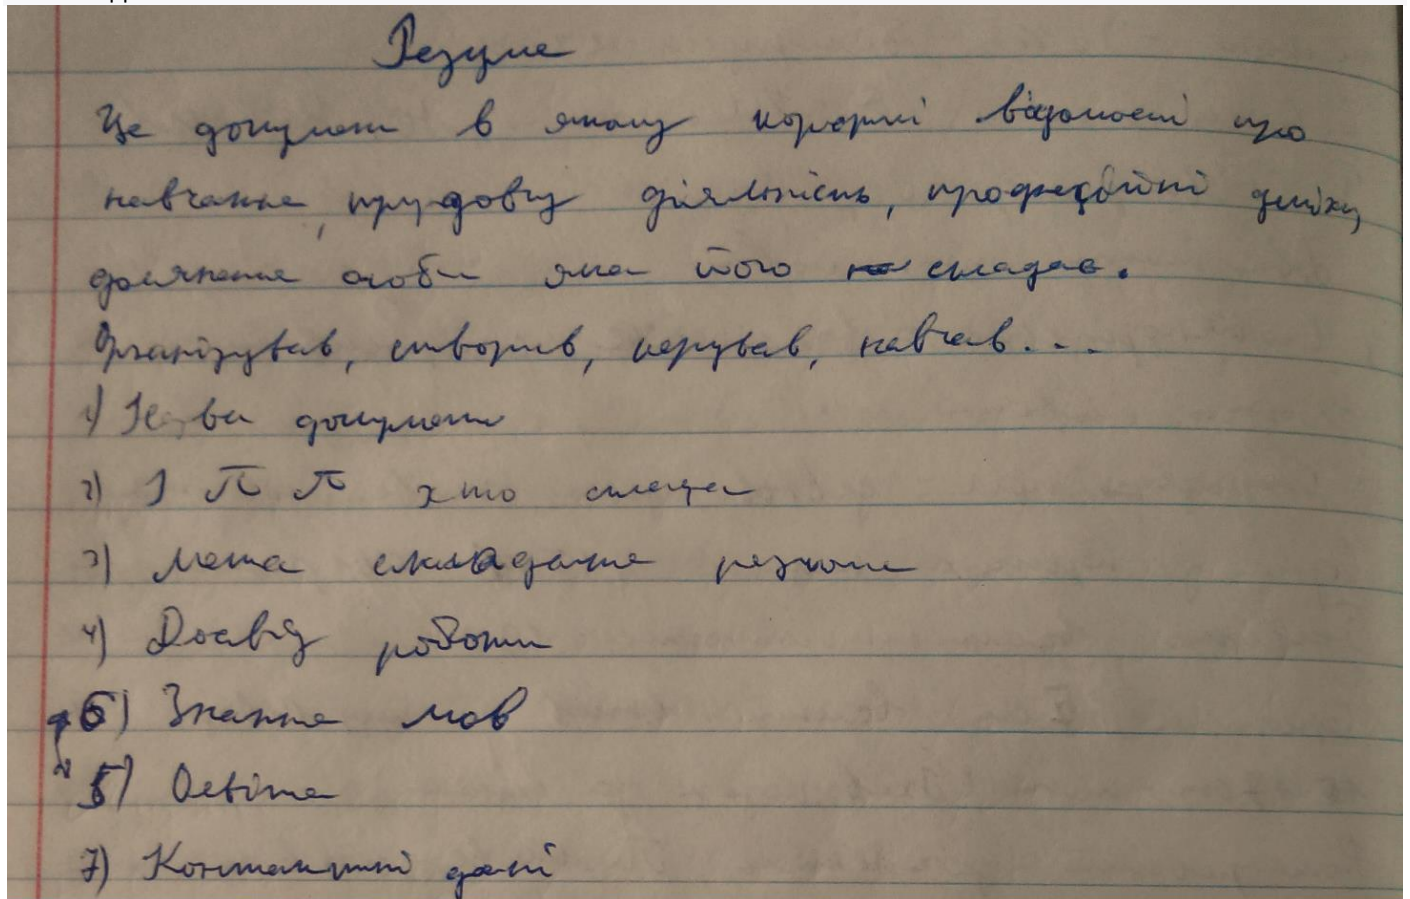 Резуме
Це документ в якому короткі відомості про
навчання, трудову діяльність, професійні успіхи,
досягнення особи яка його складає.
Організував, створив, керував, навчав...
1) Назва документа
2) І П П хто складає
3) Мета складання резюме
4) Досвід роботи
6) Знання мов
5) Освіта
7) Контактні дані